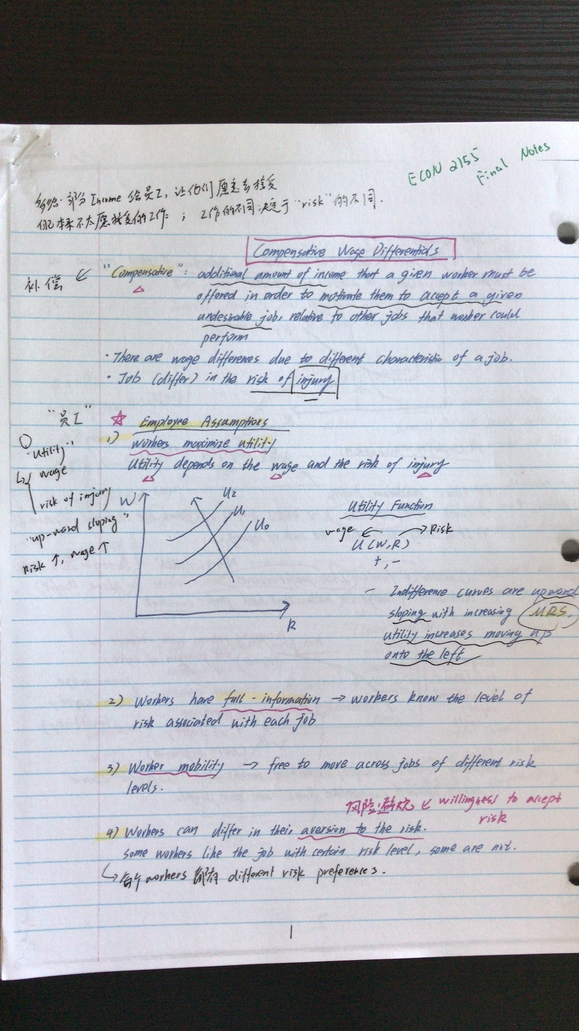 ECON 2155
Final Notes
部分 Income 给员工, 让他们愿意去接受
他们本来不太愿接受的工作; 工作的不同决定于 "risk" 的不同.
Compensative Wage Differentials
补偿 ← "Compensative": additional amount of income that a given worker must be
offered in order to motivate them to accept a given
undesirable job, relative to other jobs that worker could
perform
· There are wage differences due to different characteristic of a job.
· Job (differ) in the risk of injury
"员工" ☆ Employee Assumptions
1) workers maximize utility
Utility depends on the wage and the risk of injury
"Utility"
wage
risk of injury
"up-ward sloping"
Risk ↑, wage ↑
W
U2
U1
U0
R
Utility Function
wage ← → Risk
U(W,R)
+, -
- Indifference curves are upward
sloping with increasing MRS.
utility increases moving up
onto the left
2) Workers have full-information → workers know the level of
risk associated with each job
3) Worker mobility → free to move across jobs of different risk
levels.
风险 ← willingness to accept
risk
4) Workers can differ in their aversion to the risk.
some workers like the job with certain risk level, some are not.
↳ 每个 workers 都有 different risk preferences.
1